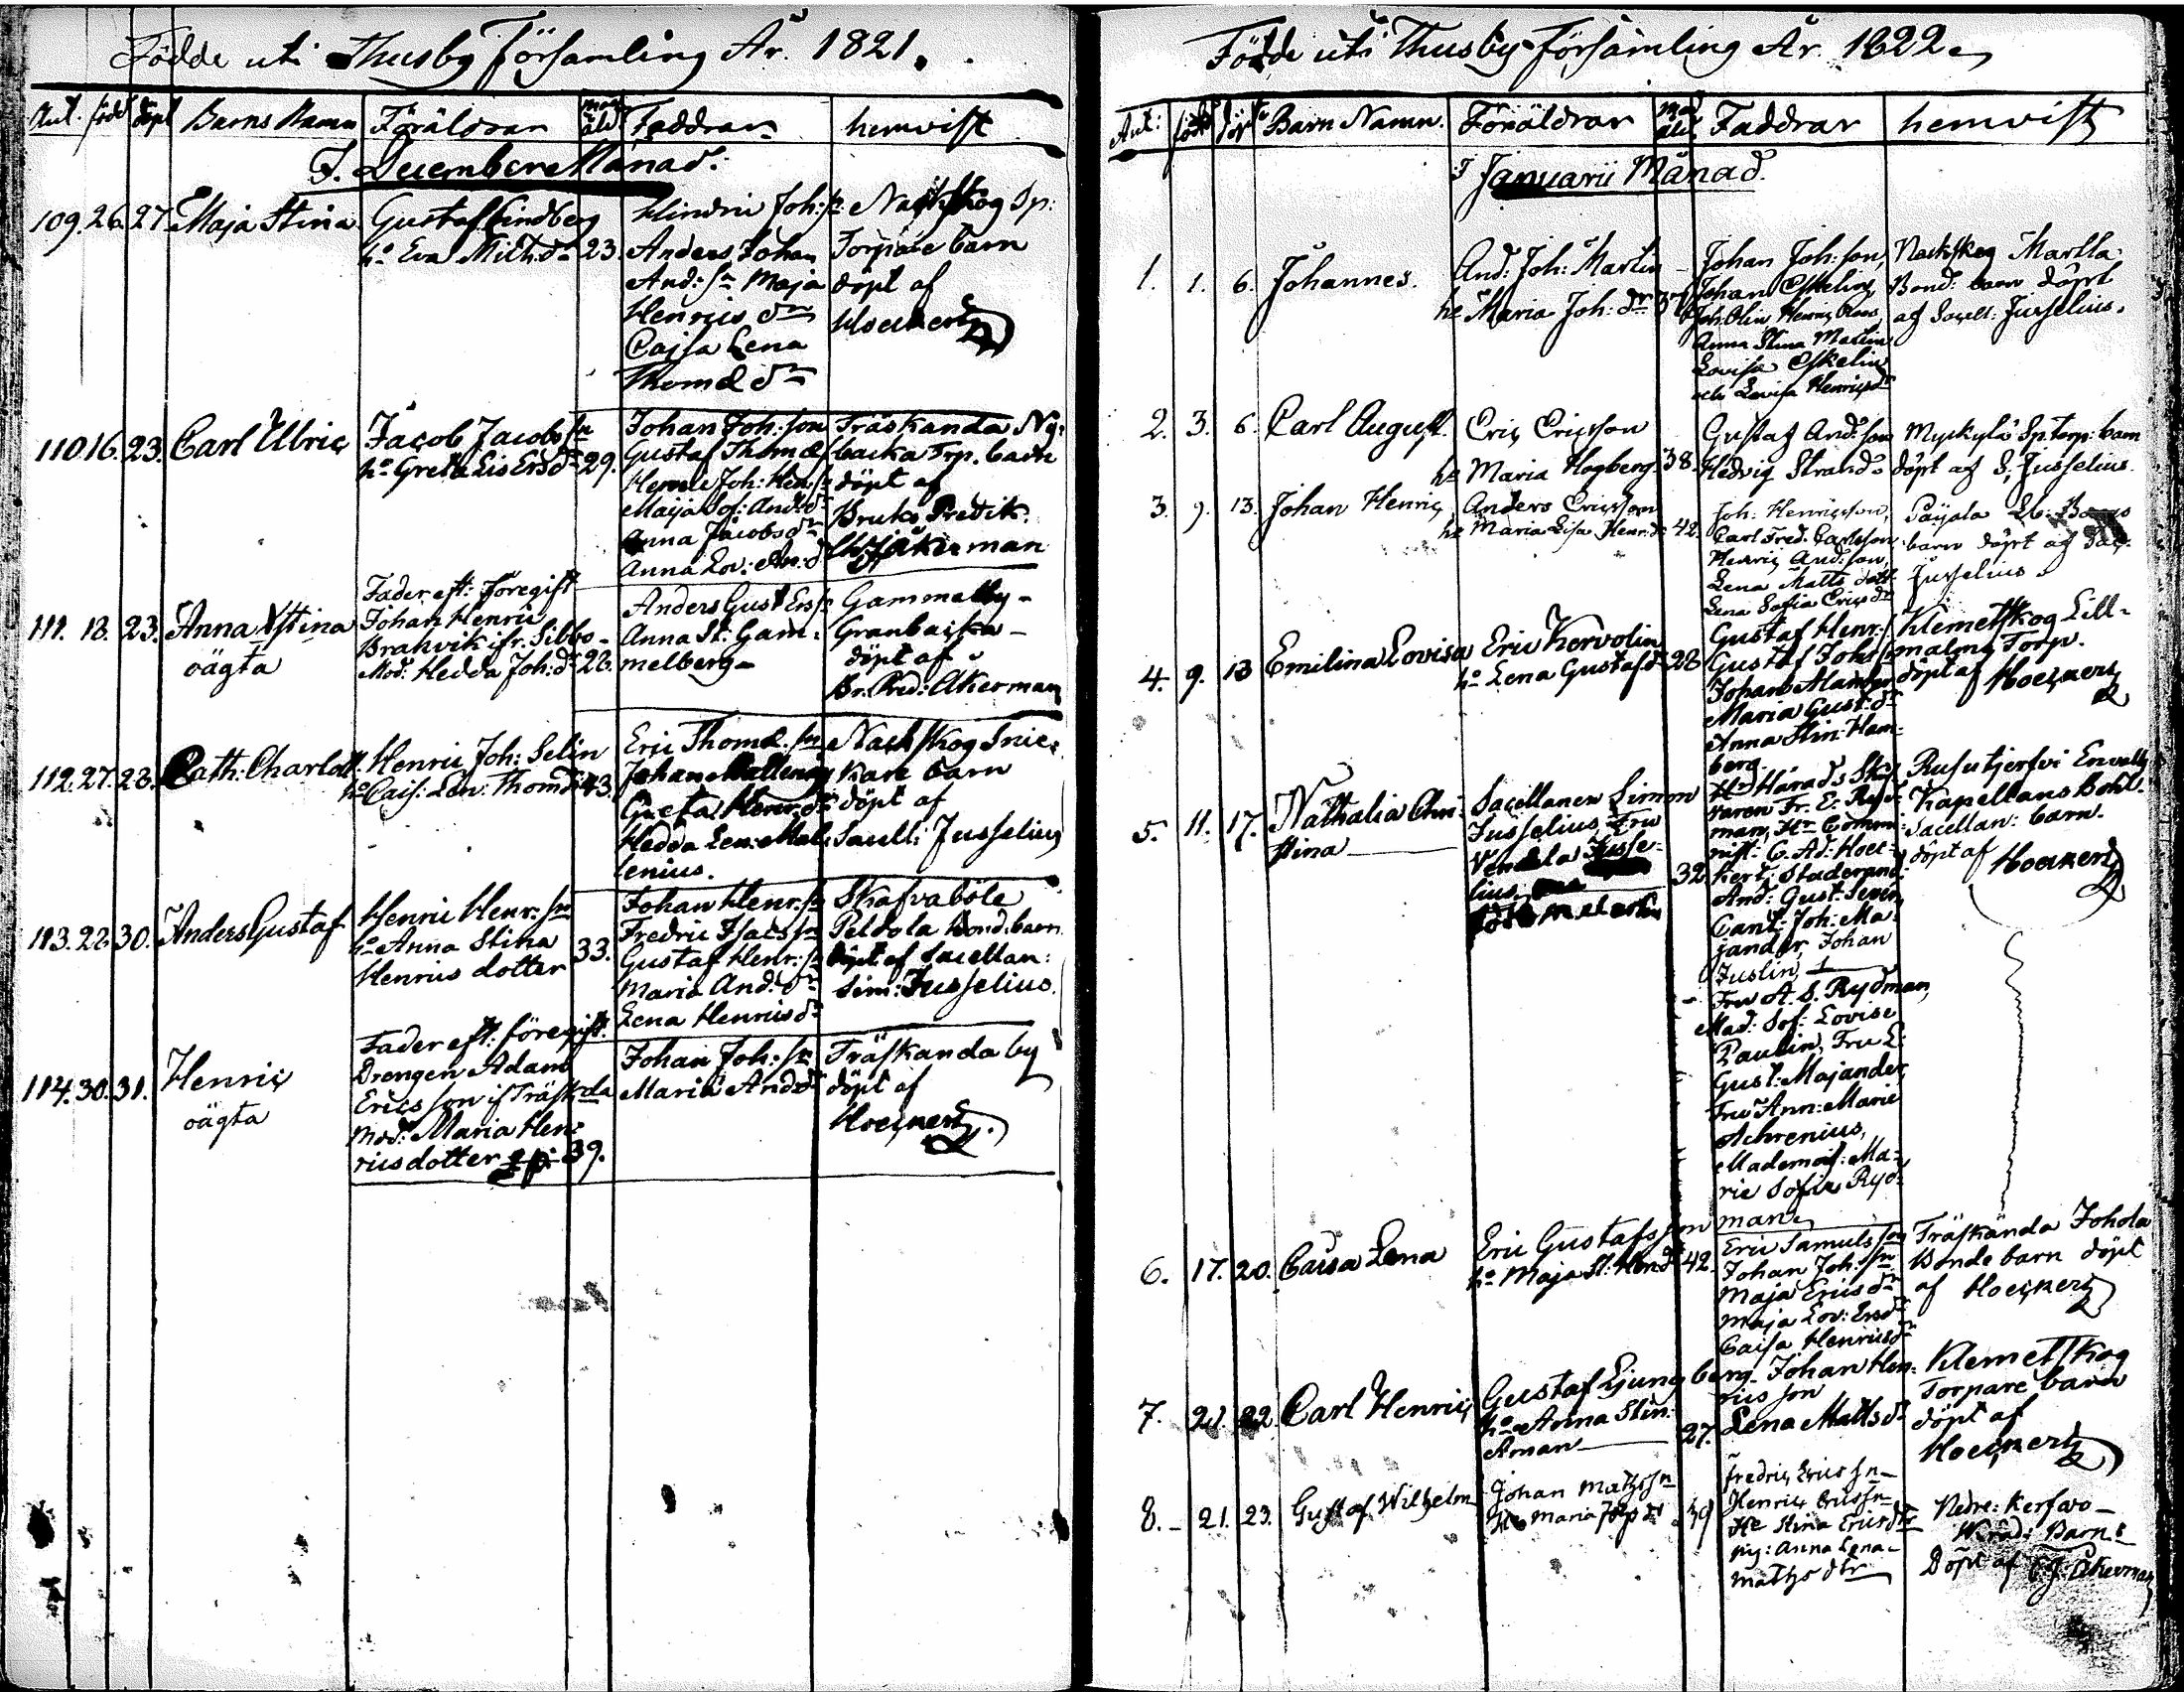 Födde uti Thusby Församling År. 1821.
Ant. född döpt Barns Namn Föräldrar mod. åld. Faddrar hemvist
I. December Månad.
109. 26. 27. Maja Stina
Gustaf Lindberg
ho Eva Mich:dr 23.
Hindric Joh:sn
Anders Johan
And:sn Maja
Henrics dr
Cajsa Lena
Thomæ dr
Nackskog Sp:
Torpare barn
döpt af
Hoeckert
110. 16. 23. Carl Ulric
Jacob Jacobssn
ho Greta Lis Ersdr 29.
Johan Joh:son
Gustaf Thomæ
Henric Joh: Hen:sn
Maija Sof: And:dr
Anna Jacobsdr
Anna Lov: An:d
Träskanda Ny:
backa Trp. barn
döpt af
Bruks Predik.
Åkerman
111. 18. 23. Anna Stina
oägta
Fader eft: föregift
Johan Henric
Brahvik ifr. Sibbo
Mod: Hedda Joh:dr 28.
Anders Gust Erssn
Anna St: Gam=
melberg
Gammelby
Granbacka
döpt af
Br. Pred: Åkerman
112. 27. 28. Cath: Charlott:
Henric Joh: Selin
ho Cais: Len: Thomdr 43.
Eric Thomæ sn
Johan Mallenius
Greta Henr:dr
Hedda Len: Mal=
lenius.
Nackskog Snic=
kare barn
döpt af
Sacell: Jusselius
113. 28. 30. Anders Gustaf
Henric Henr:sn
ho Anna Stina
Henrics dotter 33.
Johan Henr:sn
Fredric Isacssn
Gustaf Henr:sn
Maria And:dr
Lena Henricsdr
Skafvaböle
Peldola Bond: barn
döpt af Sacellan:
Sim: Jusselius.
114. 30. 31. Henric
oägta
Fader eft: föregift:
Drengen Adam
Ericsson if Träskda
Mod: Maria Hen=
ricsdotter 39.
Johan Joh:sn
Maria Andsdr
Träskanda by
döpt af
Hoeckert.
Födde uti Thusby Församling År 1822.
Ant: född döpt Barn Namn. Föräldrar mod åld Faddrar hemvist
I Januarii Månad.
1. 1. 6. Johannes.
And: Joh: Martin
ho Maria Joh:dr 37
Johan Joh:son,
Johan Eskelin,
Joh: Olin Henric Claus
Anna Stina Malin
Lovisa Eskelin
och Lovisa Henricsdr
Nackskog Martla
Bond: barn döpt
af Sacell: Jusselius.
2. 3. 6. Carl August.
Eric Ericsson
ho Maria Hogberg. 38.
Gustaf And:son
Hedvig Strand
Myckylä Sp. torp: barn
döpt af S: Jusselius.
3. 9. 13. Johan Henric
Anders Ericsson
ho Maria Lisa Henr:dr 42.
Joh: Henricsson,
Carl Fred. Carlsson
Henric And:son,
Lena Matts dott
Lena Sofia Ericsdr
Paijala
barn döpt af Sac:
Jusselius
4. 9. 13 Emilina Lovisa
Eric Kervolin
ho Lena Gustafdr 28
Gustaf Henr:
Gustaf Johssn
Johan
Maria Gust:dr
Anna Stin: Ham=
berg
Klemetskog Lill=
malms Torp.
döpt af Hoeckert
5. 11. 17. Nathalia Chri=
stina
Sacellanen Simon
Jusselius, Fru
Vendela Jusse=
lius, 32
född Meleska
Hr Härads Skri
varen Fr. E. Ryd=
man, Hr Commi=
nist: C. Ad: Hoec=
kert, Studerand:
And: Gust. Sevon
Cand: Joh: Ma=
jander, Johan
Juslin
Fru A. S. Rydman,
Mad: Sof: Lovise
Paulin, Fru E
Gust: Majander
Fru Ann: Marie
Achrenius,
Mademois: Ma=
rie Sofie Ryd=
man
Rusutjerfvi
Kapellans Bohl.
Sacellan: barn.
döpt af Hoeckert
6. 17. 20. Caisa Lena
Eric Gustafsson
ho Maja St: Hendr 42.
Eric Samulsson
Johan Joh:sn
Maja Ericsdr
Maja Lov: Ersdr
Caisa Henricsdr
Träskända Johola
Bonde barn döpt
af Hoeckert
7. 21. 22. Carl Henric
Gustaf Ljungberg
ho Anna Stin:
Aman 27.
Johan Hen=
ricsson
Lena Mattsdr
Klemetskog
Torpare barn
döpt af
Hoeckert
8. 21. 23. Gustaf Wilhelm
Johan Matssn
Ho Maria Josepdr 39
Fredric Ericssn
Henric Ericssn
He Stina Ericsdtr
pig: Anna Lena
Matsdtr
Nedre: Kerfvo
Barn:
Döpt af C. J. Åkerman